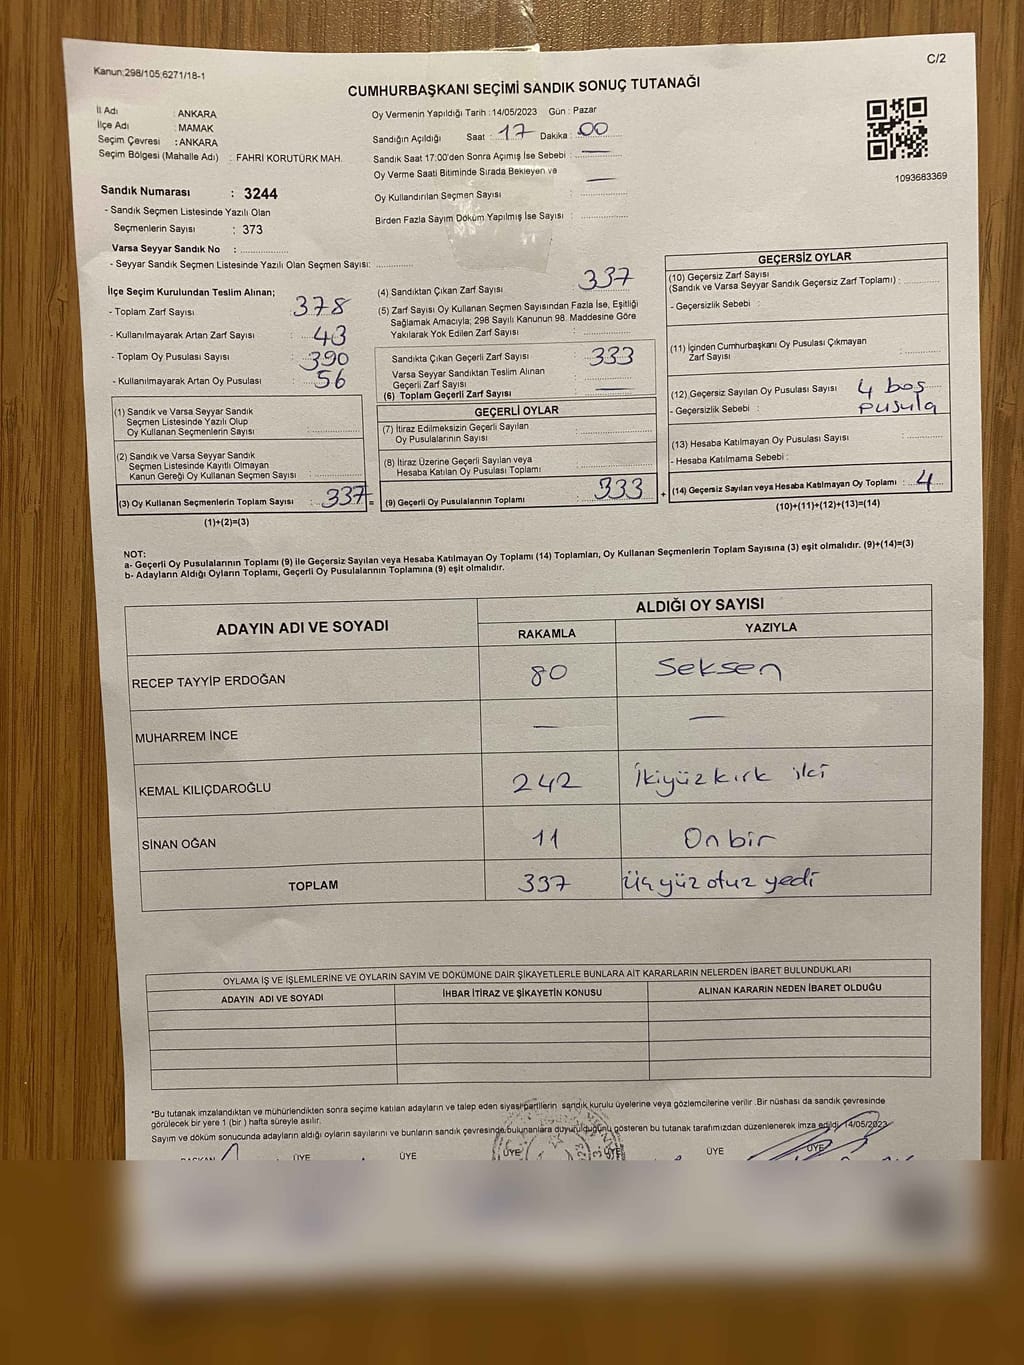 Kanun:298/105,6271/18-1
C/2
CUMHURBAŞKANI SEÇİMİ SANDIK SONUÇ TUTANAĞI
İl Adı : ANKARA
İlçe Adı : MAMAK
Seçim Çevresi : ANKARA
Seçim Bölgesi (Mahalle Adı) : FAHRİ KORUTÜRK MAH.
Oy Vermenin Yapıldığı Tarih : 14/05/2023 Gün : Pazar
Sandığın Açıldığı Saat : 17 Dakika : 00
Sandık Saat 17:00'den Sonra Açımış İse Sebebi : —
Oy Verme Saati Bitiminde Sırada Bekleyen ve —
Oy Kullandırılan Seçmen Sayısı :
Birden Fazla Sayım Döküm Yapılmış İse Sayısı :
1093683369
Sandık Numarası : 3244
- Sandık Seçmen Listesinde Yazılı Olan
Seçmenlerin Sayısı : 373
Varsa Seyyar Sandık No :
- Seyyar Sandık Seçmen Listesinde Yazılı Olan Seçmen Sayısı:
İlçe Seçim Kurulundan Teslim Alınan;
- Toplam Zarf Sayısı : 378
- Kullanılmayarak Artan Zarf Sayısı : 43
- Toplam Oy Pusulası Sayısı : 390
- Kullanılmayarak Artan Oy Pusulası : 56
(1) Sandık ve Varsa Seyyar Sandık
Seçmen Listesinde Yazılı Olup
Oy Kullanan Seçmenlerin Sayısı :
(2) Sandık ve Varsa Seyyar Sandık
Seçmen Listesinde Kayıtlı Olmayan
Kanun Gereği Oy Kullanan Seçmen Sayısı :
(3) Oy Kullanan Seçmenlerin Toplam Sayısı : 337 =
(1)+(2)=(3)
(4) Sandıktan Çıkan Zarf Sayısı : 337
(5) Zarf Sayısı Oy Kullanan Seçmen Sayısından Fazla İse, Eşitliği
Sağlamak Amacıyla; 298 Sayılı Kanunun 98. Maddesine Göre
Yakılarak Yok Edilen Zarf Sayısı :
Sandıkta Çıkan Geçerli Zarf Sayısı : 333
Varsa Seyyar Sandıktan Teslim Alınan
Geçerli Zarf Sayısı :
(6) Toplam Geçerli Zarf Sayısı : —
GEÇERLİ OYLAR
(7) İtiraz Edilmeksizin Geçerli Sayılan
Oy Pusulalarının Sayısı :
(8) İtiraz Üzerine Geçerli Sayılan veya
Hesaba Katılan Oy Pusulası Toplamı :
(9) Geçerli Oy Pusulalarının Toplamı : 333 +
GEÇERSİZ OYLAR
(10) Geçersiz Zarf Sayısı
(Sandık ve Varsa Seyyar Sandık Geçersiz Zarf Toplamı) :
- Geçersizlik Sebebi :
(11) İçinden Cumhurbaşkanı Oy Pusulası Çıkmayan
Zarf Sayısı :
(12) Geçersiz Sayılan Oy Pusulası Sayısı : 4 boş
- Geçersizlik Sebebi : pusula
(13) Hesaba Katılmayan Oy Pusulası Sayısı :
- Hesaba Katılmama Sebebi :
(14) Geçersiz Sayılan veya Hesaba Katılmayan Oy Toplamı : 4
(10)+(11)+(12)+(13)=(14)
NOT:
a- Geçerli Oy Pusulalarının Toplamı (9) ile Geçersiz Sayılan veya Hesaba Katılmayan Oy Toplamı (14) Toplamları, Oy Kullanan Seçmenlerin Toplam Sayısına (3) eşit olmalıdır. (9)+(14)=(3)
b- Adayların Aldığı Oyların Toplamı, Geçerli Oy Pusulalarının Toplamına (9) eşit olmalıdır.
ADAYIN ADI VE SOYADI
ALDIĞI OY SAYISI
RAKAMLA YAZIYLA
RECEP TAYYİP ERDOĞAN 80 Seksen
MUHARREM İNCE — —
KEMAL KILIÇDAROĞLU 242 İkiyüzkırk iki
SİNAN OĞAN 11 On bir
TOPLAM 337 üçyüz otuz yedi
OYLAMA İŞ VE İŞLEMLERİNE VE OYLARIN SAYIM VE DÖKÜMÜNE DAİR ŞİKAYETLERLE BUNLARA AİT KARARLARIN NELERDEN İBARET BULUNDUKLARI
ADAYIN ADI VE SOYADI İHBAR İTİRAZ VE ŞİKAYETİN KONUSU ALINAN KARARIN NEDEN İBARET OLDUĞU
*Bu tutanak imzalandıktan ve mühürlendikten sonra seçime katılan adayların ve talep eden siyasi partilerin sandık kurulu üyelerine veya gözlemcilerine verilir .Bir nüshası da sandık çevresinde
görülecek bir yere 1 (bir ) hafta süreyle asılır.
Sayım ve döküm sonucunda adayların aldığı oyların sayılarını ve bunların sandık çevresinde bulunanlara duyurulduğunu gösteren bu tutanak tarafımızdan düzenlenerek imza edildi. 14/05/2023
BAŞKAN ÜYE ÜYE ÜYE ÜYE ÜYE ÜYE